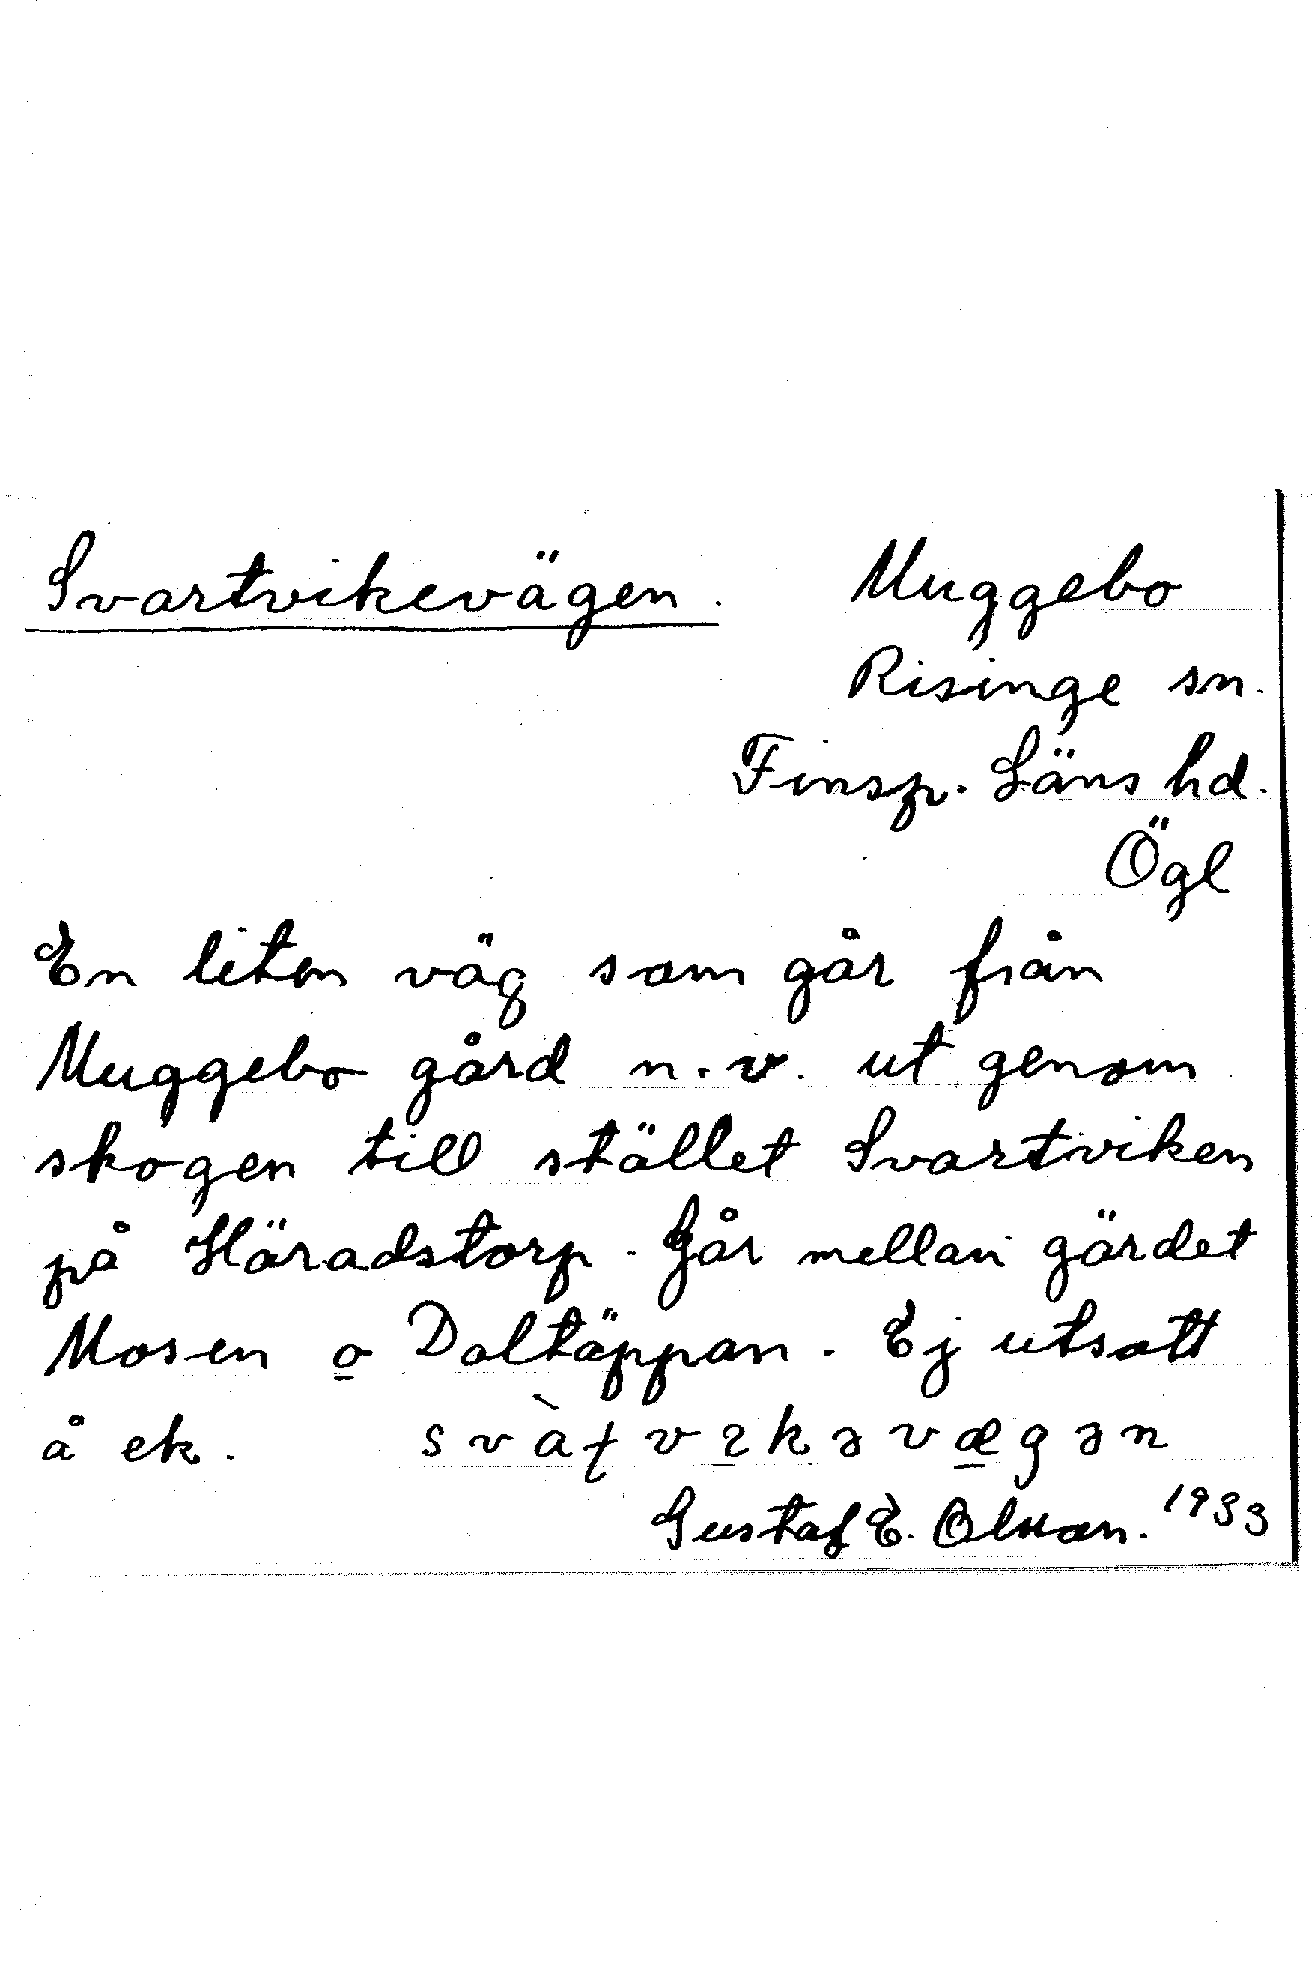 Svartvikevägen. Muggebo
Risinge sn.
Finsp. Läns hd.
Ögl
En liten väg som går från
Muggebo gård n.v. ut genom
skogen till stället Svartviken
på Häradstorp. Går mellan gärdet
Mosen o Daltäppan. Ej utsatt
å ek. svàƭvɪkəvægən
Gustaf E. Olsson. 1933